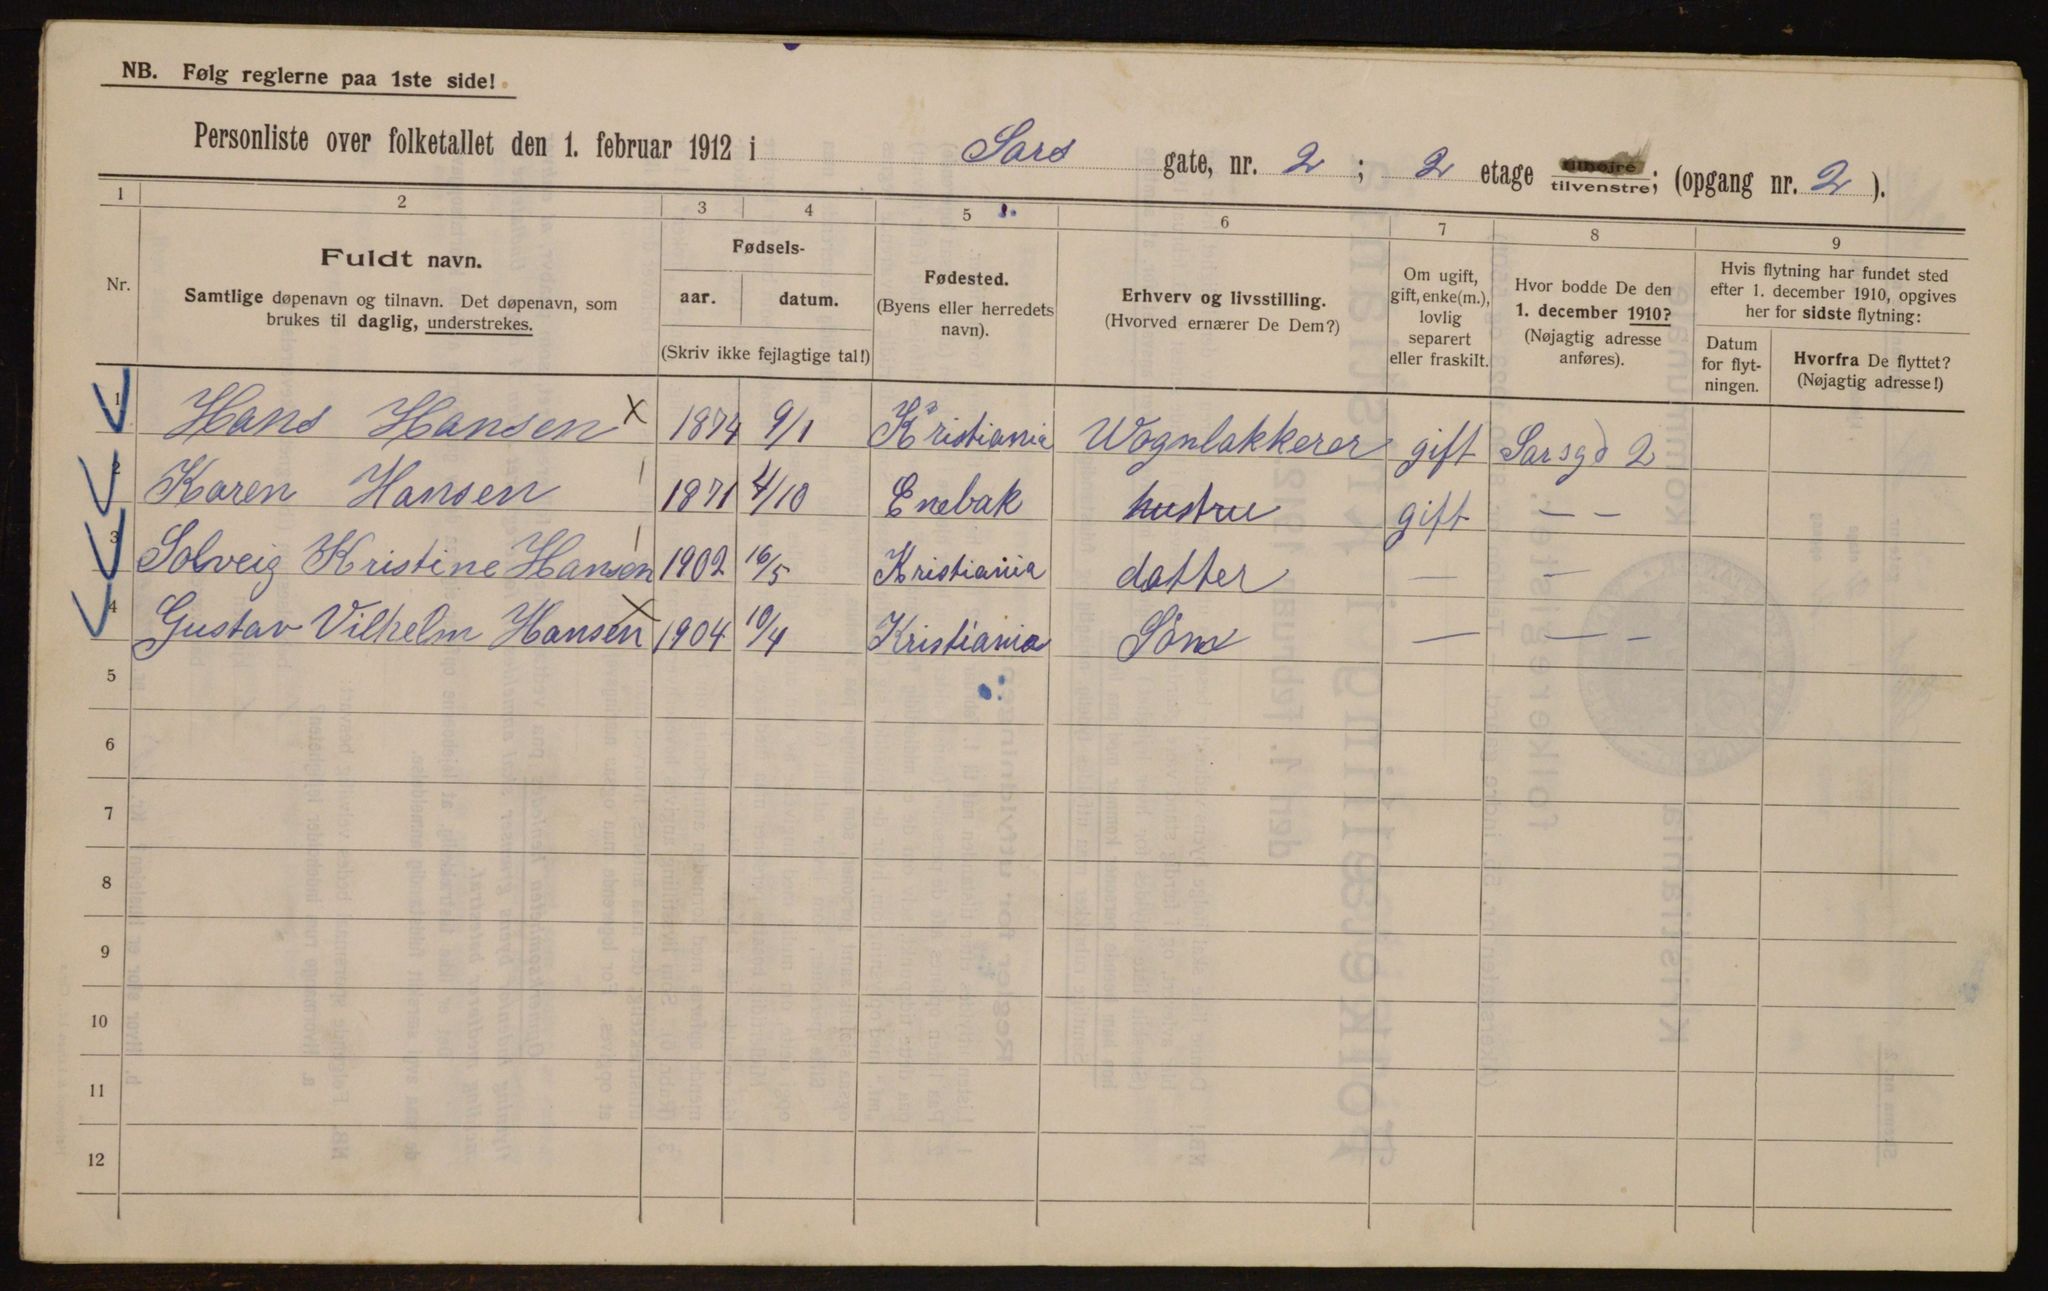 NB. Følg reglerne paa 1ste side!
Personliste over folketallet den 1. februar 1912 i Sars gate, nr. 2 ; 2 etage tilhøjre tilvenstre; (opgang nr. 2 ).
1 2 3 4 5 6 7 8 9
Nr.
Fuldt navn.
Samtlige døpenavn og tilnavn. Det døpenavn, som
brukes til daglig, understrekes.
Fødsels-
aar. datum.
(Skriv ikke fejlagtige tal!)
Fødested.
(Byens eller herredets
navn).
Erhverv og livsstilling.
(Hvorved ernærer De Dem?)
Om ugift,
gift, enke(m.),
lovlig
separert
eller fraskilt.
Hvor bodde De den
1. december 1910?
(Nøjagtig adresse
anføres).
Hvis flytning har fundet sted
efter 1. december 1910, opgives
her for sidste flytning:
Datum
for flyt-
ningen.
Hvorfra De flyttet?
(Nøjagtig adresse!)
1 Hans Hansen x 1874 9/1 Kristiania Wognlakkerer gift Sarsgd 2
2 Karen Hansen 1871 4/10 Enebak hustru gift — —
3 Solveig Kristine Hansen 1902 16/5 Kristiania datter — —
4 Gustav Vilhelm Hansen x 1904 10/4 Kristiania Sön — — —
5
6
7
8
9
10
11
12